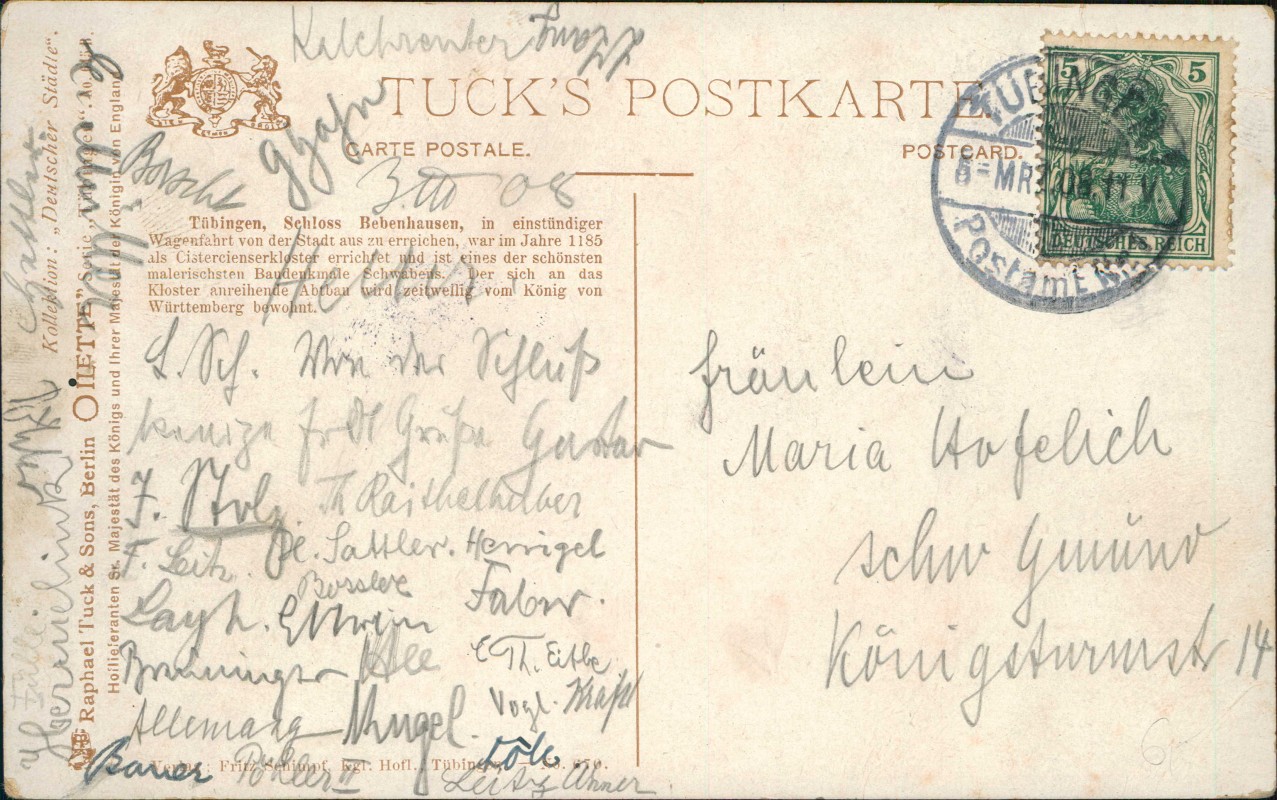 TUCK'S POSTKARTE.
CARTE POSTALE.
POSTCARD.
3. III 08
Tübingen, Schloss Bebenhausen, in einstündiger
Wagenfahrt von der Stadt aus zu erreichen, war im Jahre 1185
als Cistercienserkloster errichtet und ist eines der schönsten
malerischsten Baudenkmale Schwabens. Der sich an das
Kloster anreihende Abtbau wird zeitweilig vom König von
Württemberg bewohnt.
L. Sch. Von der Schluß
kneipe Grüße Gustav
F. Stolz. Th Raithelhuber
F. Leitz. Sattler. Herrigel
Bossler
Layh. Ettwein Faber.
Breuninger Klee Th. Eitle
Allemang Mugel. Vogl. Kraft
Bauer Pöhler II Leitz
Verlag: Fritz Schimpf, Kgl. Hofl., Tübingen — No. 670.
Kollektion: „Deutscher Städte".
Raphael Tuck & Sons, Berlin OILETTE" Serie „Tübingen".
Hoflieferanten Sr. Majestät des Königs und Ihrer Majestät der Königin von England
5 5
DEUTSCHES REICH
TUEBINGEN
MRZ.08
Postamt
Fräulein
Maria Hofelich
Schw Gmünd
Königsturmstr 14